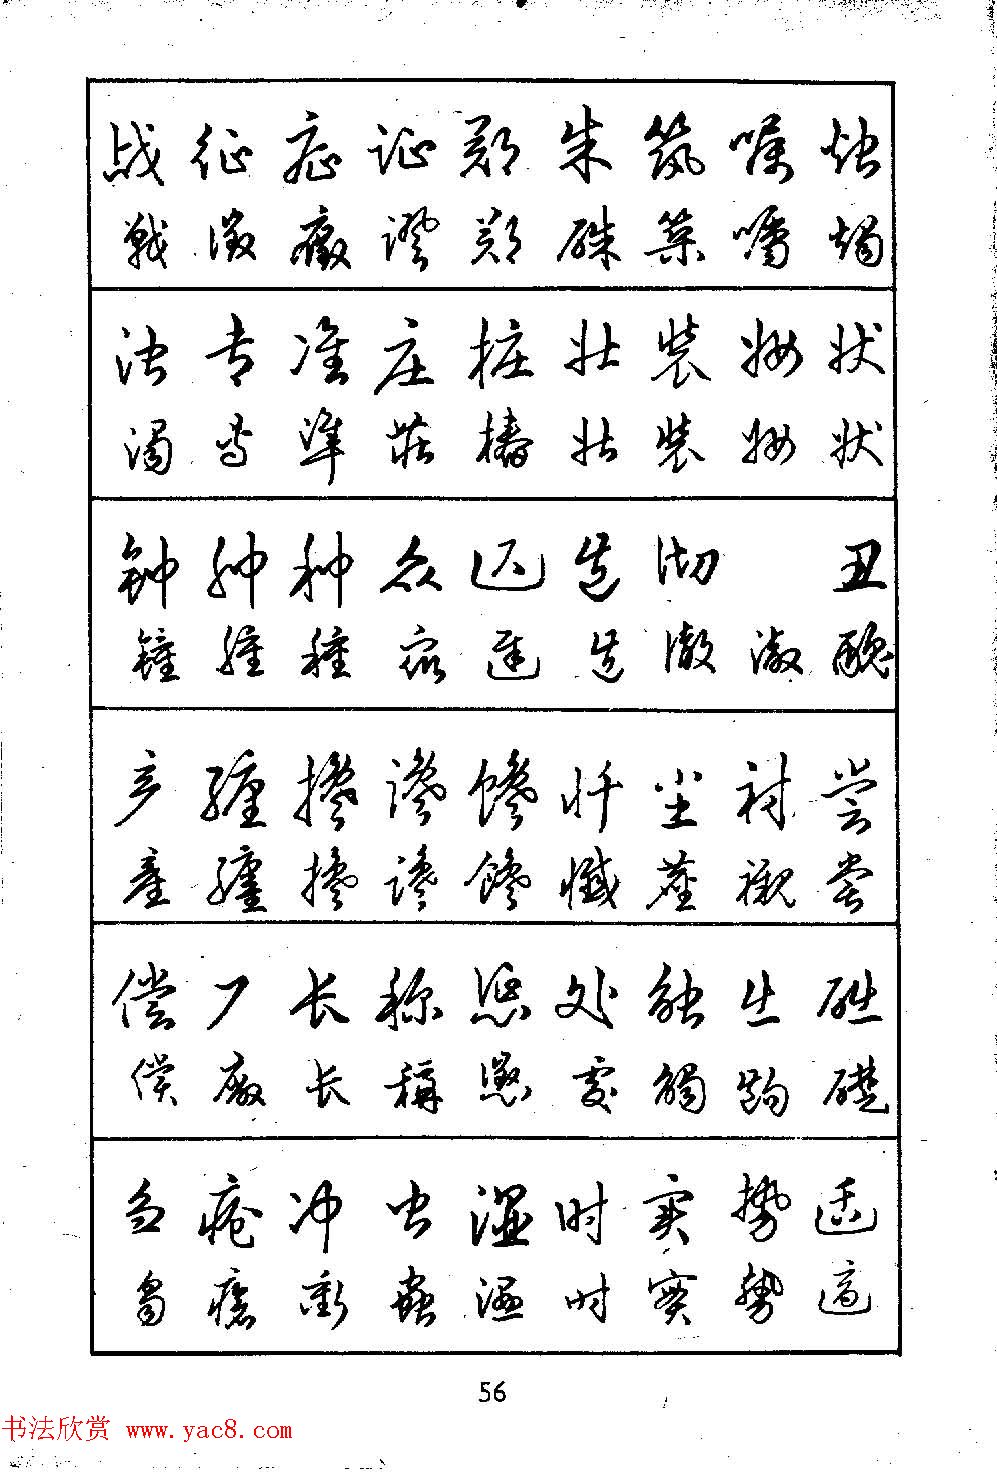 战征症证郑朱筑嘱烛
戰徵癥證鄭硃築囑燭
浊专准庄桩壮装妆状
濁專準莊樁壯裝妝狀
钟肿种众迟迭沏丑
鐘腫種眾遲迭澈澈醜
产缠搀谗馋忏尘衬尝
產纏攙讒饞懺塵襯嘗
偿厂长称惩处触刍础
償廠長稱懲處觸芻礎
刍疮冲虫湿时实势适
芻瘡衝蟲濕時實勢適
56
书法欣赏 www.yac8.com